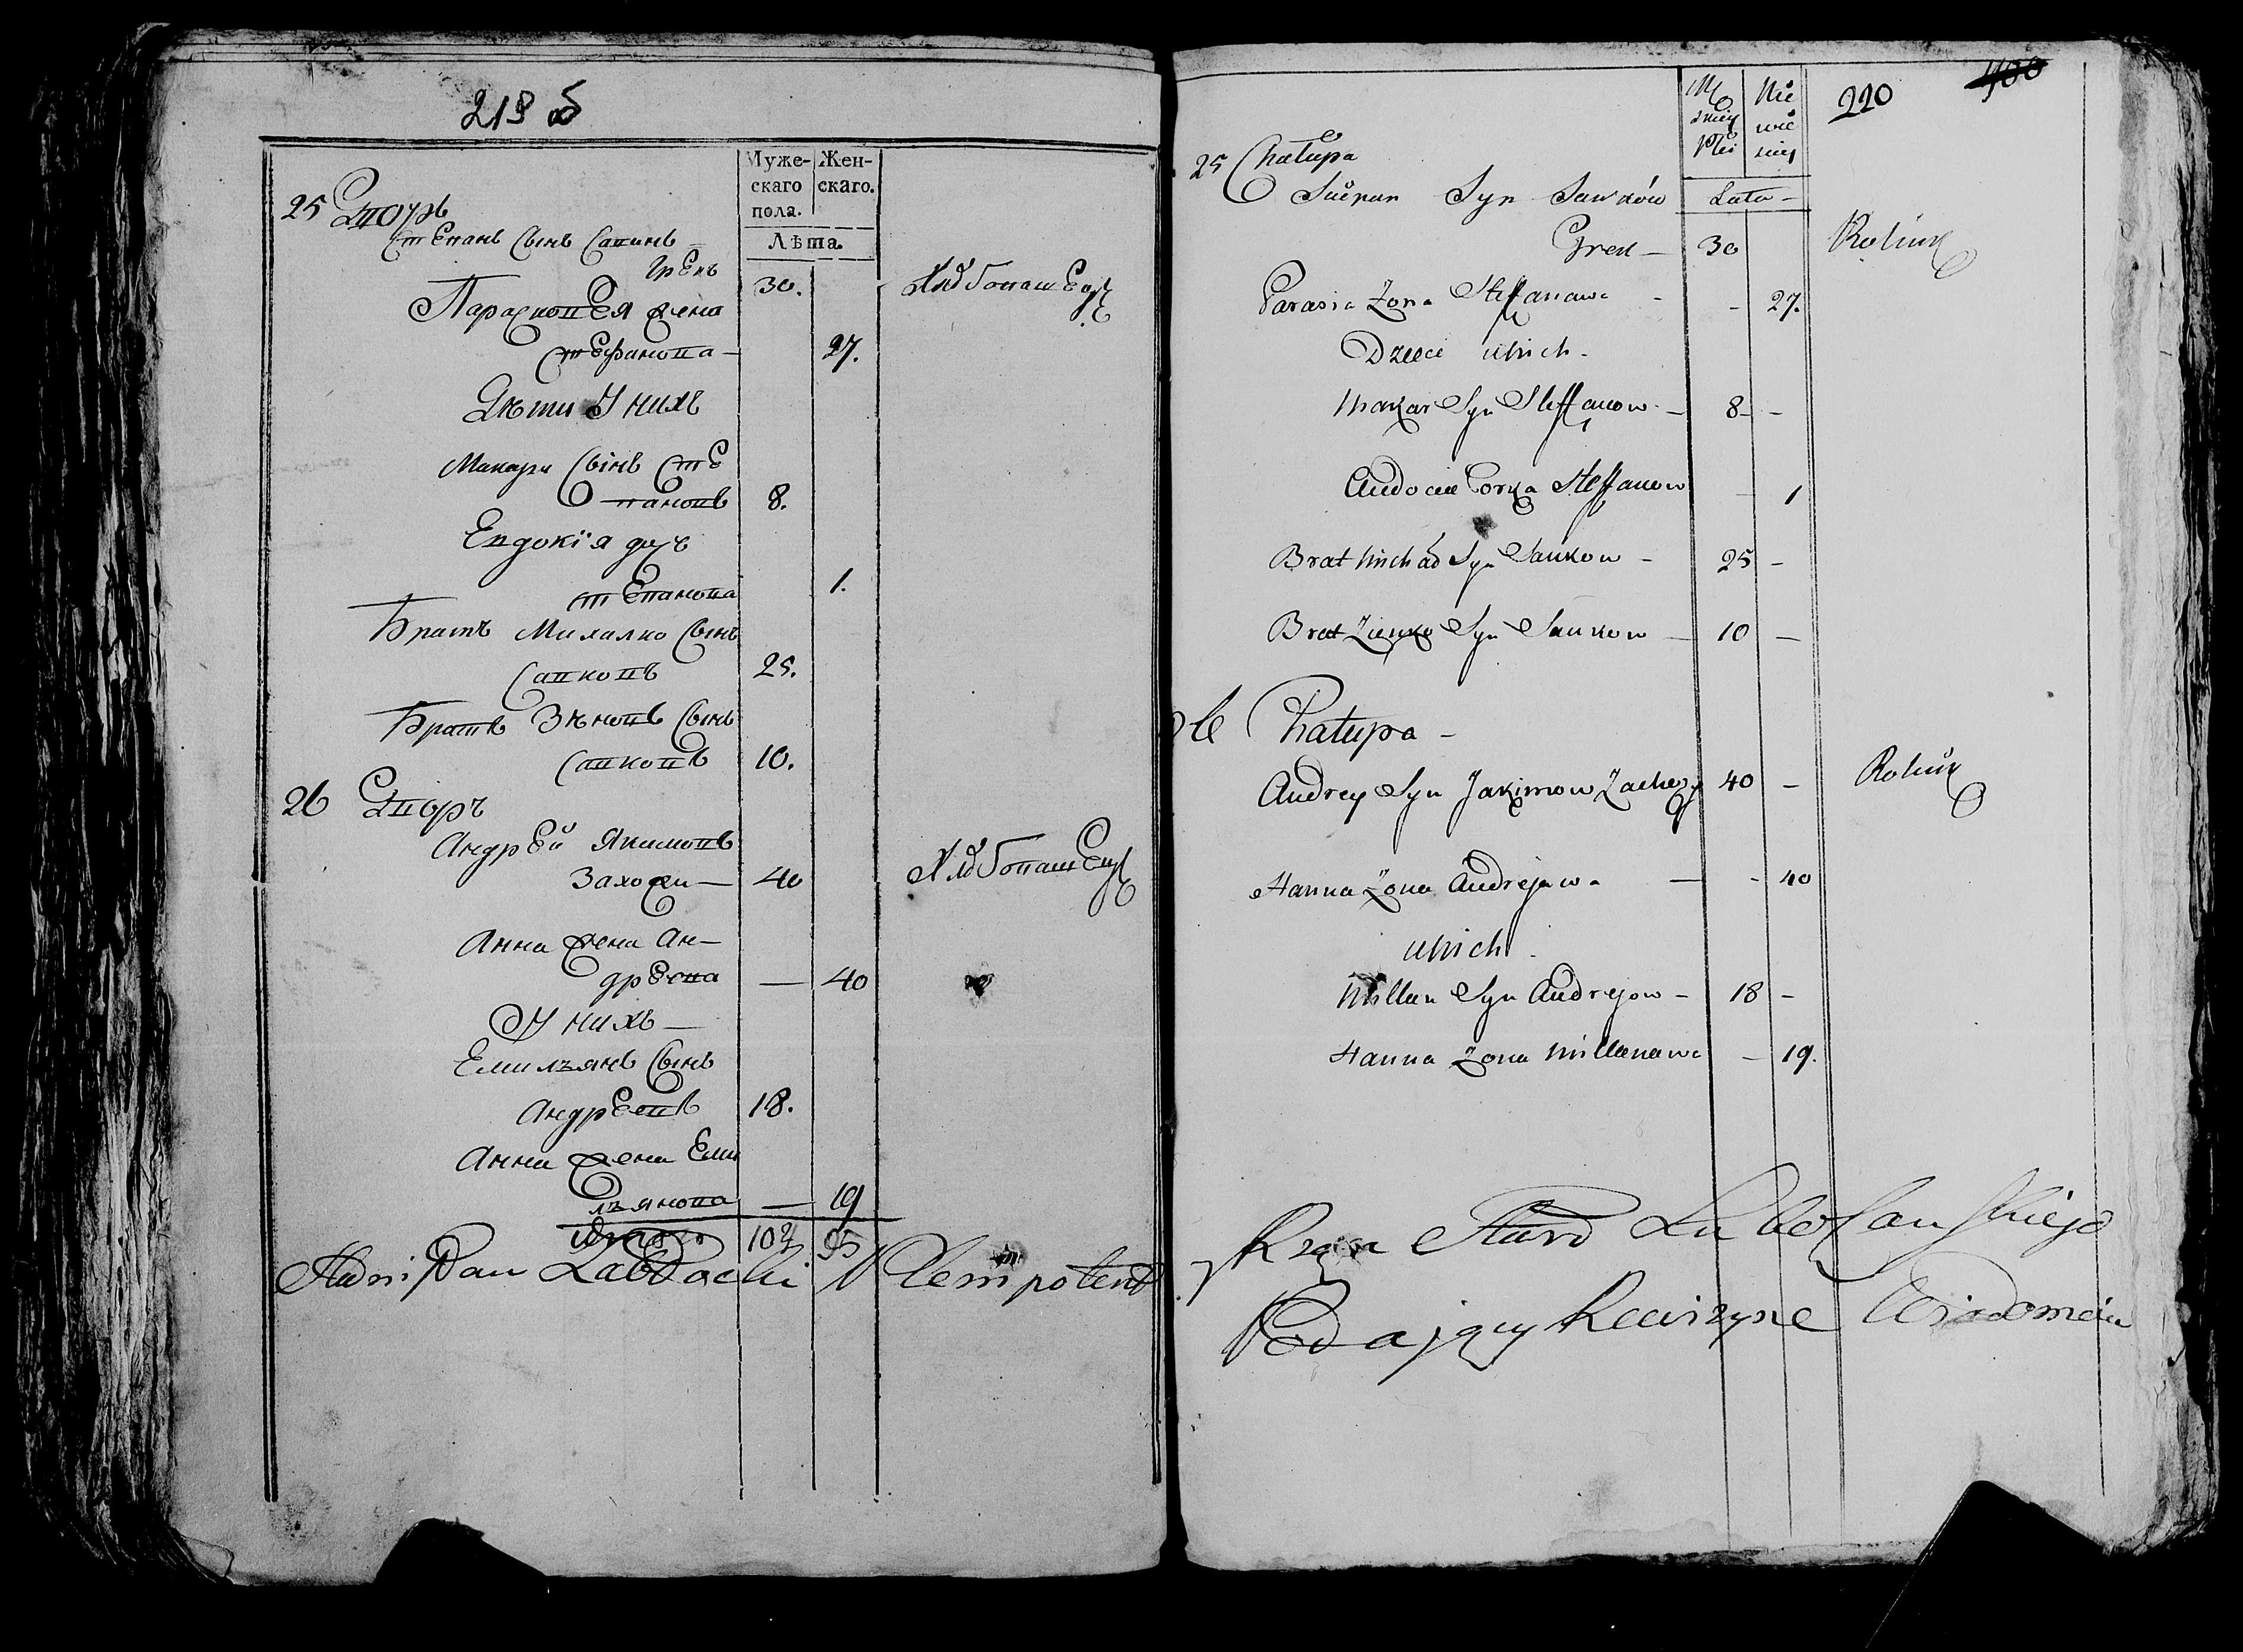 219 б
Муже-
скаго
пола.
Жен-
скаго.
Лѣта.
25 Дворъ
Степанъ Сынъ Савинъ
Грекъ 30. Хлѣбопашецъ
Парасковея жена
Стефанова — 27.
Дѣти У нихъ
Макари Сынъ Сте
пановъ 8.
Евдокія дочь
Степанова 1.
Братъ Михалко Сынъ
Савковъ 25.
Братъ Зѣновъ Сынъ
Савковъ 10.
26 Дворъ
Андрей Якимовъ
Захожи — 40 Хлѣбопашецъ
Анна жена Ан—
дреева — 40
У нихъ —
Емилъянъ Сынъ
Андреевъ 18.
Анна жена Еми
лъянова — 19
Итого 102 95
Pan Plempotent
220 400
Lata —
25 Chałupa
Syn Sawków
Grek — 30 Rolnik
Parasia Zona Steffanawa - - 27.
Dzieci unich -
Makar Syn Steffanow - 8 -
Audocia Corka Steffanow - 1
Brat Michał Syn Sawkow - 25 -
Brat Zienko Syn Sawkow — 10 —
26 Chałupa -
Andrey Syn Jakimow 40 - Rolnik
Hanna Zona Andrejowa — - 40
unich
Millan Syn Andrejow - 18 -
Hanna Zona Millanawa - 19.
Podający Rewizyne